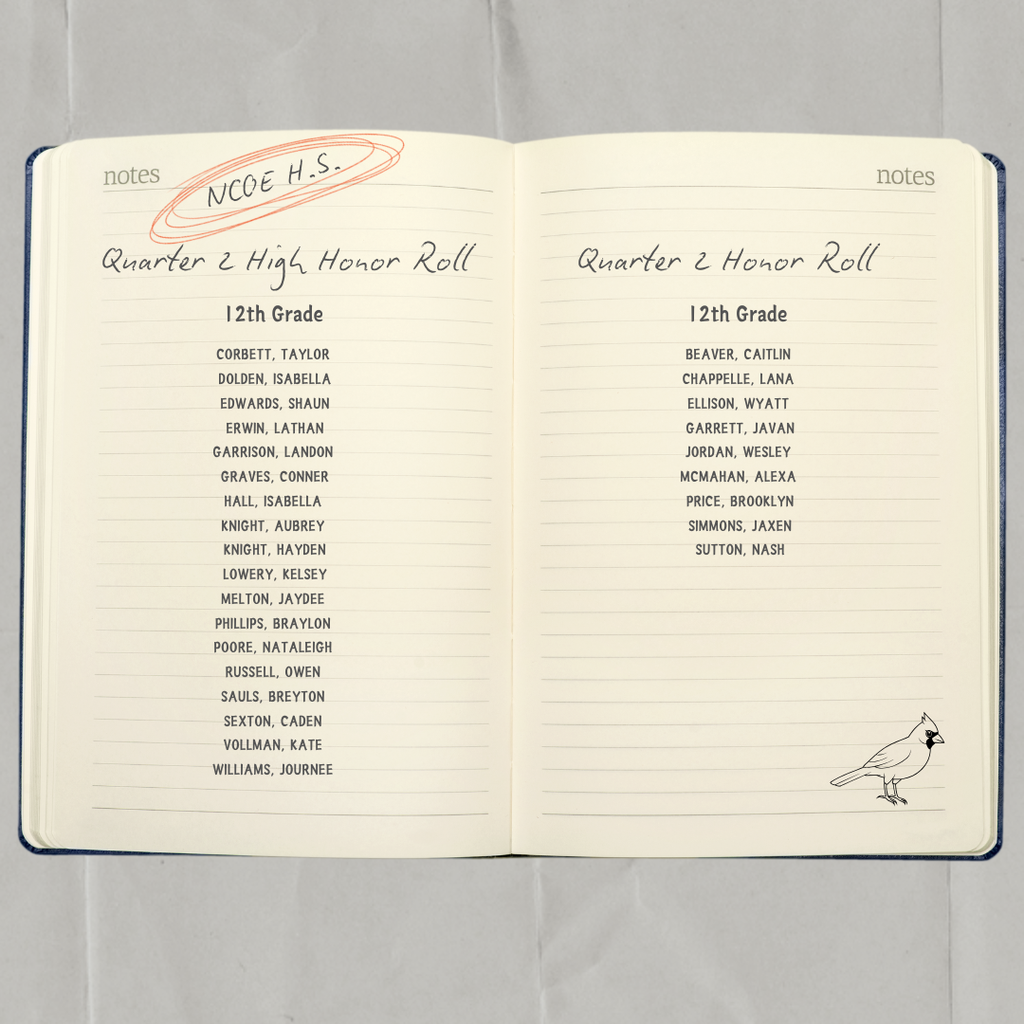 notes
NCOE H.S.
Quarter 2 High Honor Roll
12th Grade
CORBETT, TAYLOR
DOLDEN, ISABELLA
EDWARDS, SHAUN
ERWIN, LATHAN
GARRISON, LANDON
GRAVES, CONNER
HALL, ISABELLA
KNIGHT, AUBREY
KNIGHT, HAYDEN
LOWERY, KELSEY
MELTON, JAYDEE
PHILLIPS, BRAYLON
POORE, NATALEIGH
RUSSELL, OWEN
SAULS, BREYTON
SEXTON, CADEN
VOLLMAN, KATE
WILLIAMS, JOURNEE
notes
Quarter 2 Honor Roll
12th Grade
BEAVER, CAITLIN
CHAPPELLE, LANA
ELLISON, WYATT
GARRETT, JAVAN
JORDAN, WESLEY
MCMAHAN, ALEXA
PRICE, BROOKLYN
SIMMONS, JAXEN
SUTTON, NASH